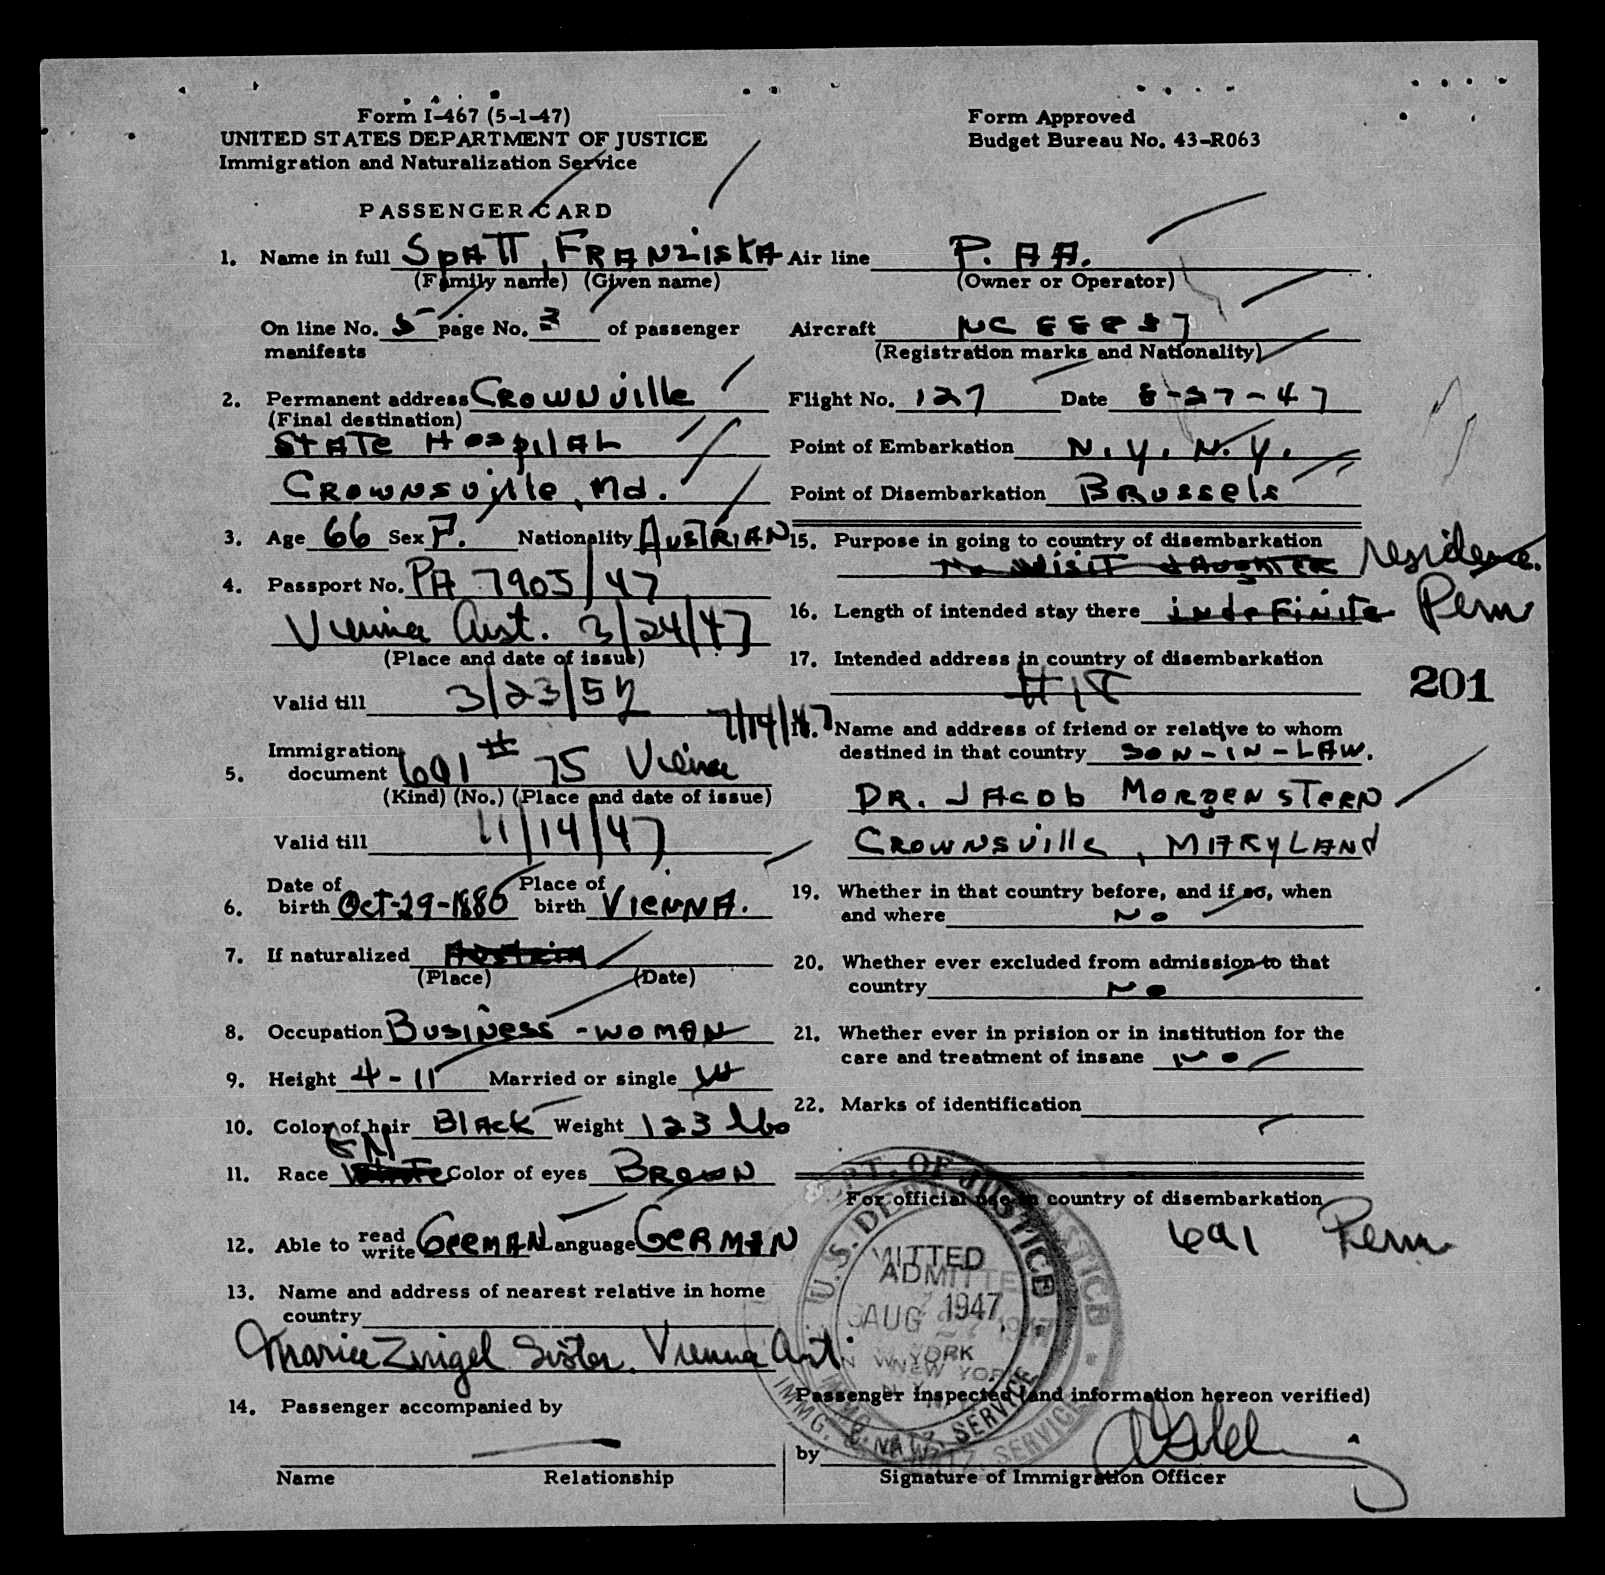 Form I-467 (5-1-47)
UNITED STATES DEPARTMENT OF JUSTICE
Immigration and Naturalization Service
PASSENGER CARD
Form Approved
Budget Bureau No. 43-R063
1. Name in full SPATT, FRANZISKA
(Family name) (Given name)
On line No. 5 page No. 3 of passenger
manifests
2. Permanent address CROWNVille
(Final destination)
STATE HospitAL
CROWNSVille, Md.
3. Age 66 Sex F. Nationality AUSTRIAN
4. Passport No. PA 7905/47
Vienna Aust. 3/24/47
(Place and date of issue)
Valid till 3/23/52
7/14/47
Immigration
5. document 691 # 75 Vienna
(Kind) (No.) (Place and date of issue)
Valid till 11/14/47
Date of Place of
6. birth Oct-29-1880 birth VIENNA.
7. If naturalized
(Place) (Date)
8. Occupation BUSINess - WOMAN
9. Height 4-11 Married or single W
10. Color of hair BlACK Weight 123 lbs
GN
11. Race White Color of eyes BROWN
12. Able to read write GERMAN Language GERMAN
13. Name and address of nearest relative in home
country
Sister. Vienna Aust.
14. Passenger accompanied by
Name Relationship
Air line P. AA.
(Owner or Operator)
Aircraft NC
(Registration marks and Nationality)
Flight No. 127 Date 8-27-47
Point of Embarkation N.Y. N.Y.
Point of Disembarkation BRUSSels
15. Purpose in going to country of disembarkation
To VISIT DAUGHTER residence.
16. Length of intended stay there indeFINITe Perm
17. Intended address in country of disembarkation
201
18. Name and address of friend or relative to whom
destined in that country SON-IN-LAW.
DR. JACOb MORGENSTERN
CROWNSville, MARYLAND
19. Whether in that country before, and if so, when
and where No
20. Whether ever excluded from admission to that
country No
21. Whether ever in prision or in institution for the
care and treatment of insane No
22. Marks of identification
For official use in country of disembarkation
691 Perm
U.S. DEPT. OF JUSTICE
ADMITTED
AUG 27 1947
NEW YORK
N.Y.
IMMG. & NATZ. SERVICE
Passenger inspected (and information hereon verified)
by
Signature of Immigration Officer